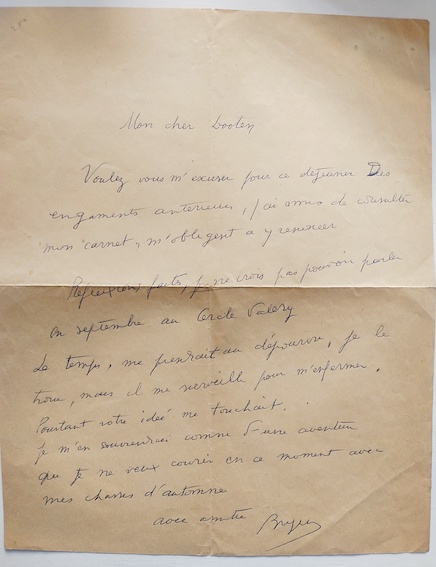 Mon cher
Voulez vous m'excuser pour ce déjeuner Des
engaments antérieurs, j'ai omis de consulter
mon carnet, m'obligent a y renoncer
Réflexions faites, je ne crois pas pouvoir parler
en septembre au Cercle Valery
Le temps, me prendrait au dépourvu, je le
mais il me pour m'enfermer.
Pourtant votre idée me touchait.
Je m'en souviendrai comme d'une aventure
que je ne veux courir en ce moment avec
mes chasses d'automne
avec amitié